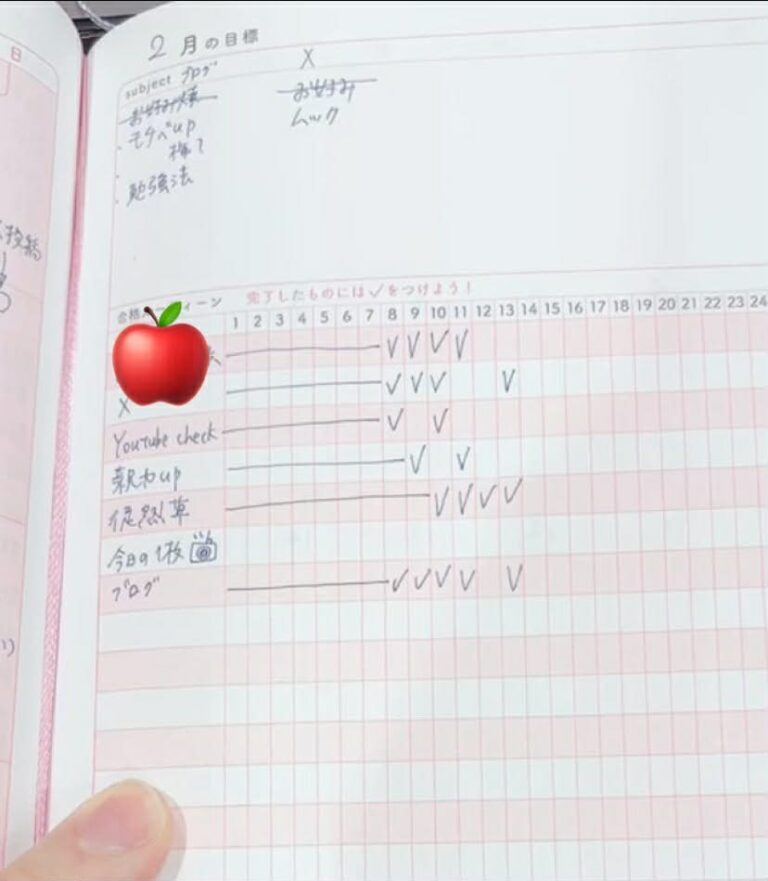 日
2月の目標
subject ブログ
お好み焼
・モチベup
・勉強法
X
お好み
ムック
投稿
完了したものには✓をつけよう！
1 2 3 4 5 6 7 8 9 10 11 12 13 14 15 16 17 18 19 20 21 22 23 24
X
Youtube check
釈力up
徒然草
今日の1枚
ブログ